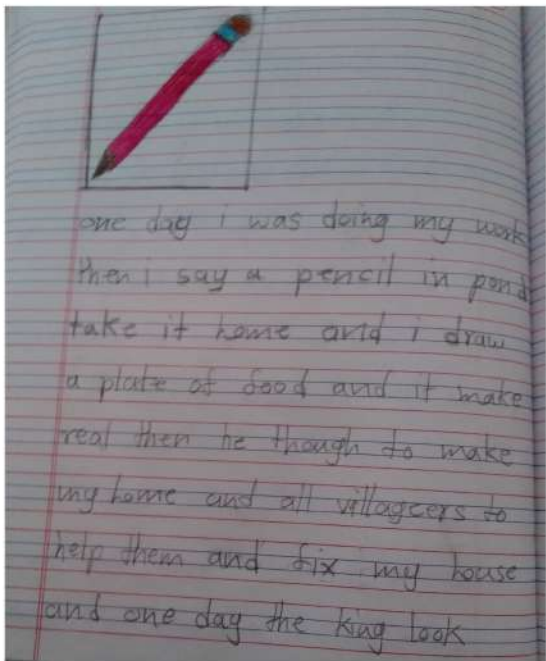 one day i was doing my work
then i say a pencil in pond
take it home and i draw
a plate of food and it make
real then he though to make
my home and all villagcers to
help them and fix my house
and one day the king look